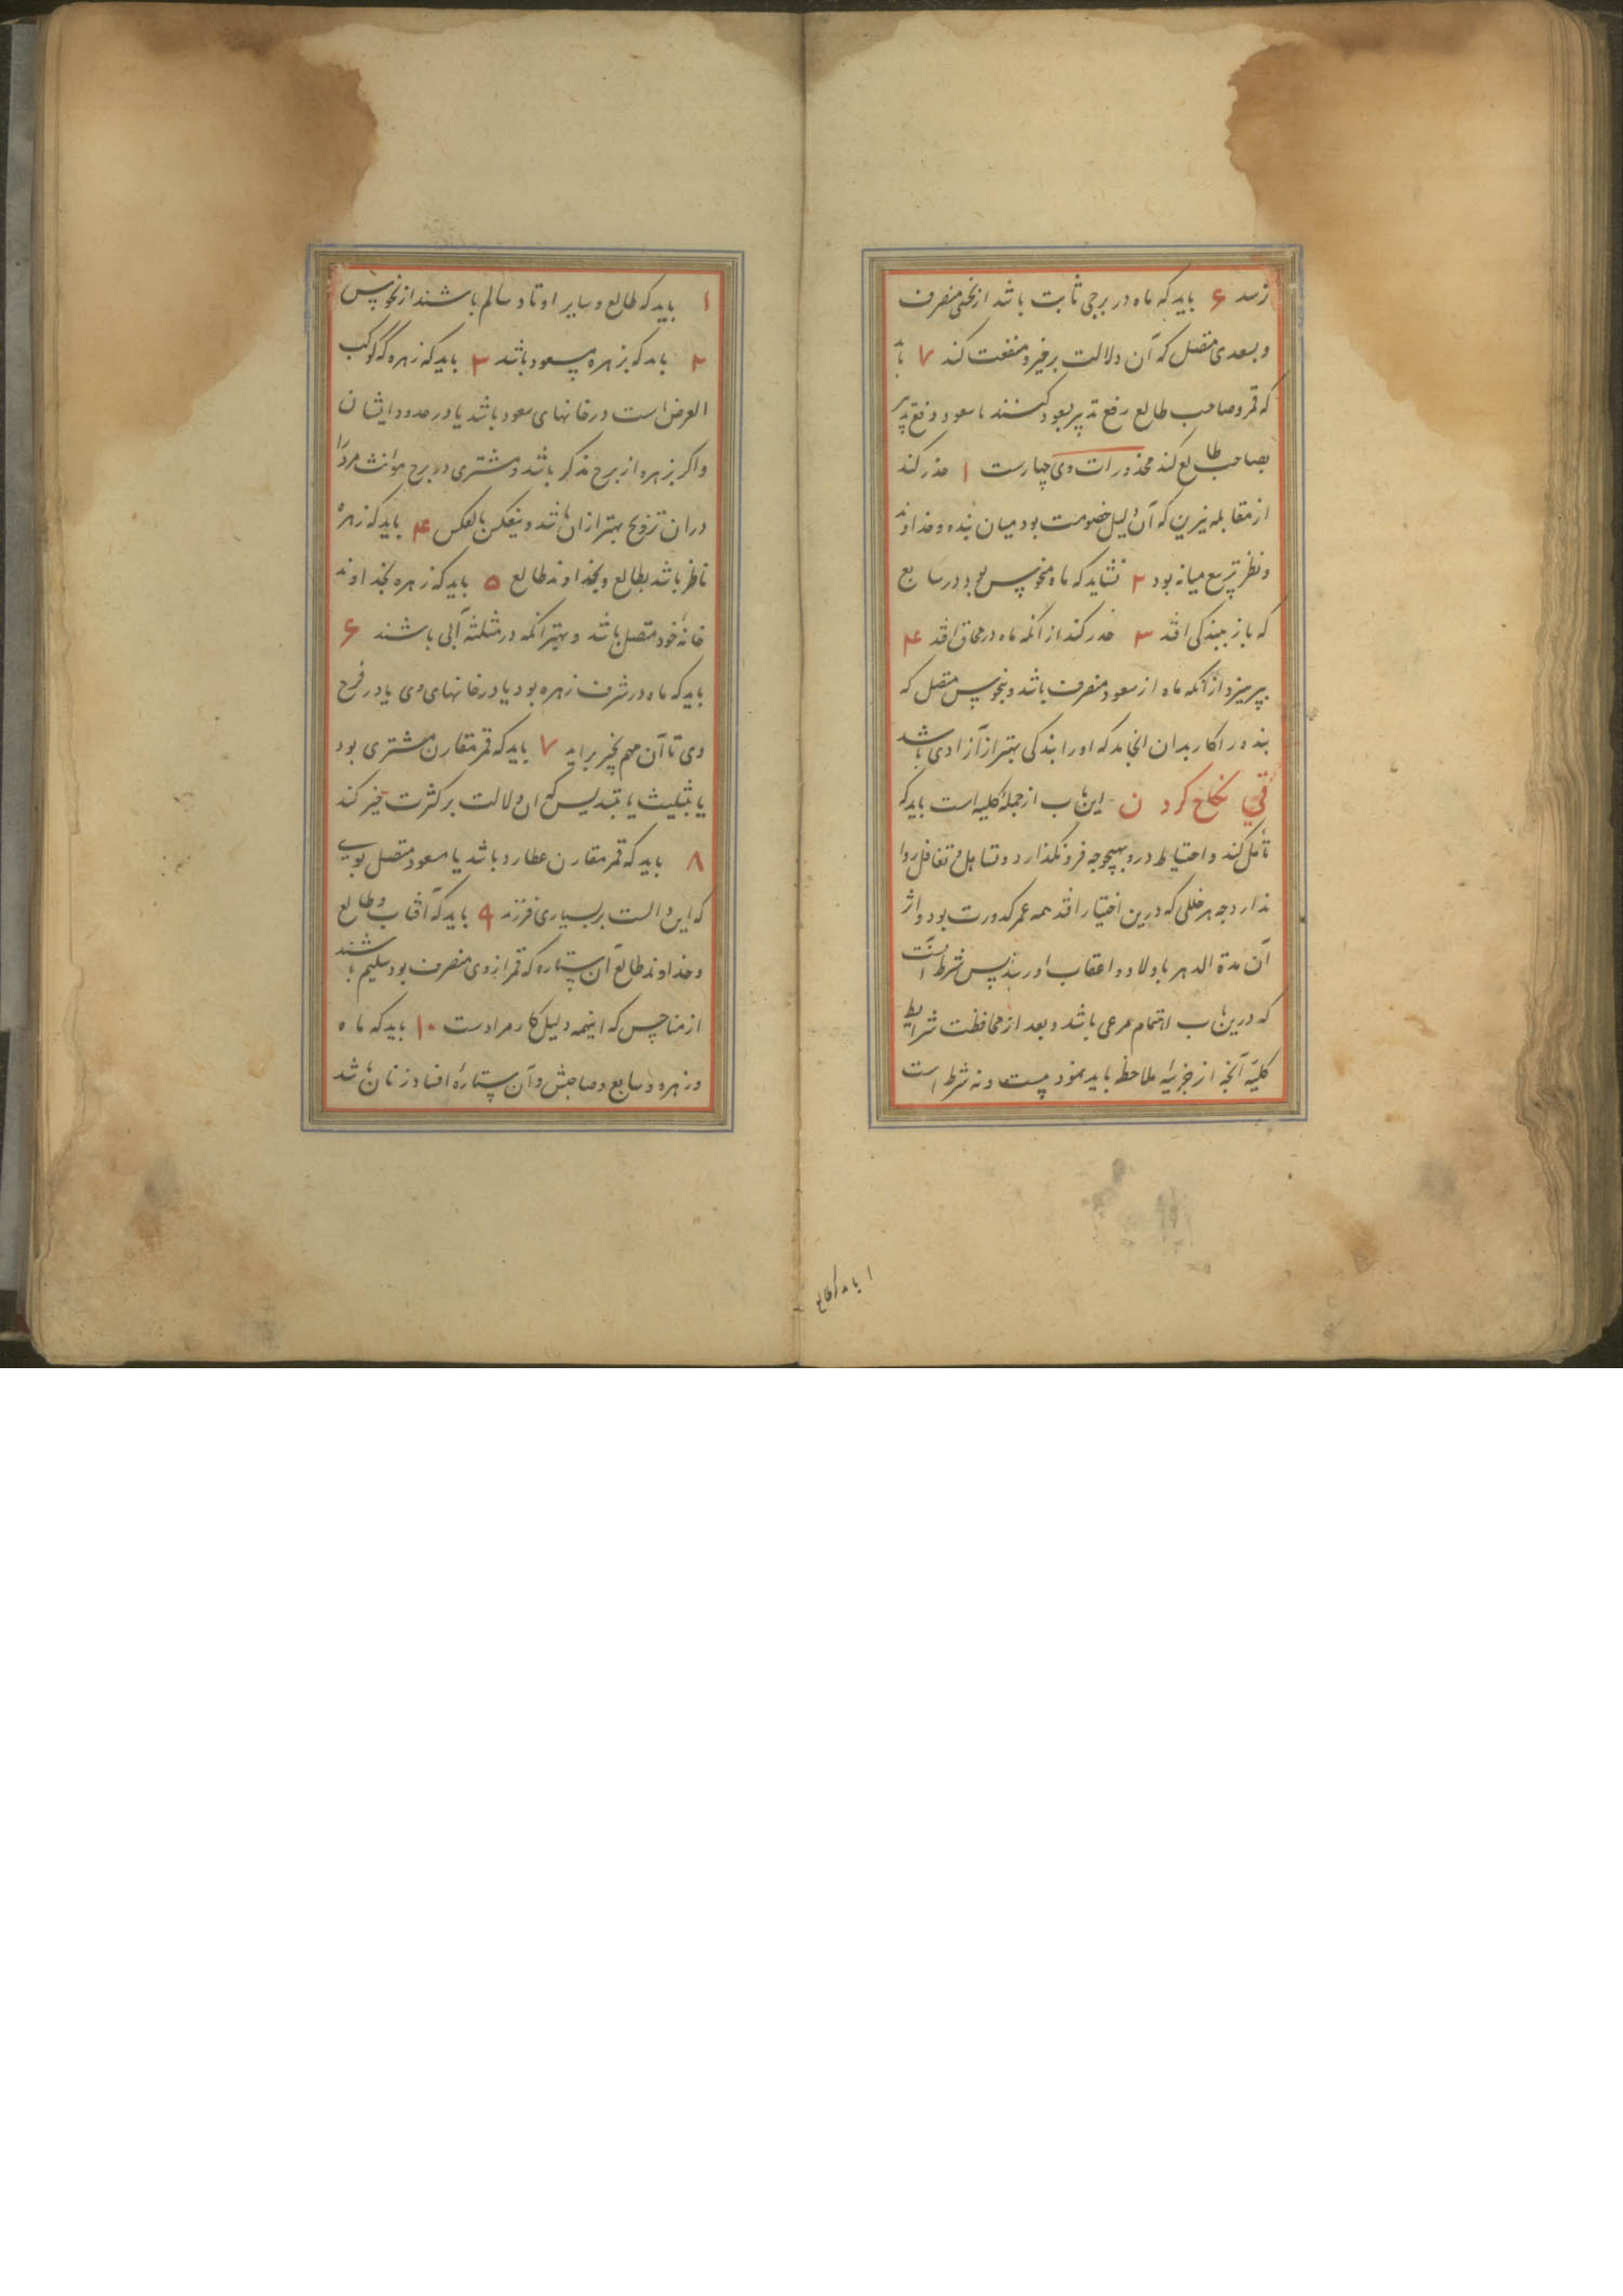 نرسد ۶ باید که ماه در برجی ثابت باشد از نحسی منصرف
و بسعدی متصل که آن دلالت بر خیر و منفعت کند ۷ باید
که قمر و صاحب طالع رفع تدبیر بسعود کنند یا سعود رفع تدبیر
بصاحب طالع کند محذورات وی چهارست ۱ حذر کند
از مقابله نیرین که آن دلیل خصومت بود میان بنده و خداوند
و نظر تربیع میانه بود ۲ نشاید که ماه منحوس بود در سابع
که باز ببندکی افتد ۳ حذر کند از انکه ماه در محاق افتد ۴
بپرهیزد از آنکه ماه از سعود منصرف باشد و بنحوس متصل که
بنده را کار بدان انجامد که او را بندکی بهتر از آزادی باشد
فی نکاح کردن این باب از جملهٔ کلیه است باید که
تأمل کند و احتیاط درو بهیچوجه فرونکذارد و تساهل و تغافل روا
ندارد چه هر خللی که درین اختیار افتد همه عمر کدورت بود و اثر
آن مدة الدهر باولاد و اعقاب او رسد پس شرط آنست
که درین باب اهتمام مرعی باشد و بعد از محافظت شرایط
کلیّه آنچه از جزئیه ملاحظه باید نمود بیست و نه شرط است
۱ باید که طالع
۱ باید که طالع و سایر اوتاد سالم باشند از نحوس
۲ باید که زهره مسعود باشد ۳ باید که زهره که کوکب
العرض است در خانهای سعود باشد یا در حدود ایشان
و اکر زهره از برج مذکر باشد و مشتری در برج مؤنث مرد را
در ان تزویج بهتر از ان باشد و بعکس بالعکس ۴ باید که زهره
ناظر باشد بطالع و بخداوند طالع ۵ باید که زهره بخداوند
خانهٔ خود متصل باشد و بهتر آنکه در مثلثهٔ آبی باشند ۶
باید که ماه در شرف زهره بود یا در خانهای وی یا در فرح
وی تا آن مهم بخیر براید ۷ باید که قمر مقارن مشتری بود
یا بتثلیث یا بتسدیس که ان دلالت بر کثرت خیر کند
۸ باید که قمر مقارن عطارد باشد یا مسعود متصل بوی
که این دالست بر بسیاری فرزند ۹ باید که آفتاب و طالع
و خداوند طالع و آن ستاره که قمر از وی منصرف بود سلیم باشند
از مناحس که اینهمه دلیل کار مرادست ۱۰ باید که ماه
و زهره و سابع و صاحبش و آن ستاره افتاد زنان باشد